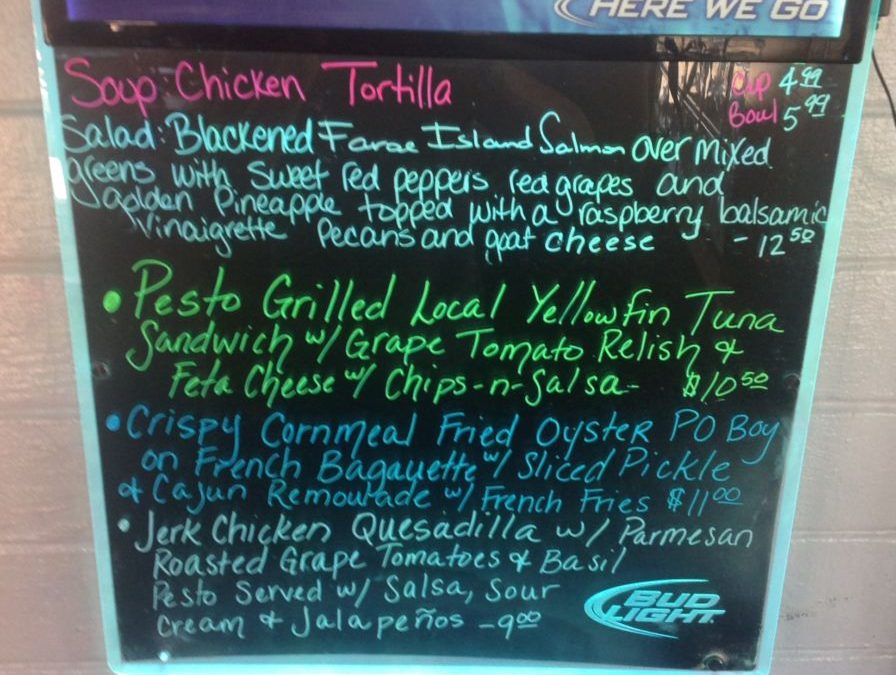 HERE WE GO
Soup: Chicken Tortilla Cup 4.99
Bowl 5.99
Salad: Blackened Faroe Island Salmon over mixed
greens with sweet red peppers red grapes and
golden pineapple topped with a raspberry balsamic
vinaigrette pecans and goat cheese - 12 50
• Pesto Grilled Local Yellowfin Tuna
Sandwich w/ Grape Tomato Relish &
Feta Cheese w/ Chips-n-Salsa- $10 50
• Crispy Cornmeal Fried Oyster PO Boy
on French Bagauette w/ Sliced Pickle
& Cajun Remoulade w/ French Fries $11 00
• Jerk Chicken Quesadilla w/ Parmesan
Roasted Grape Tomatoes & Basil
Pesto Served w/ Salsa, Sour
Cream & Jalapeños - 9 00
BUD
LIGHT